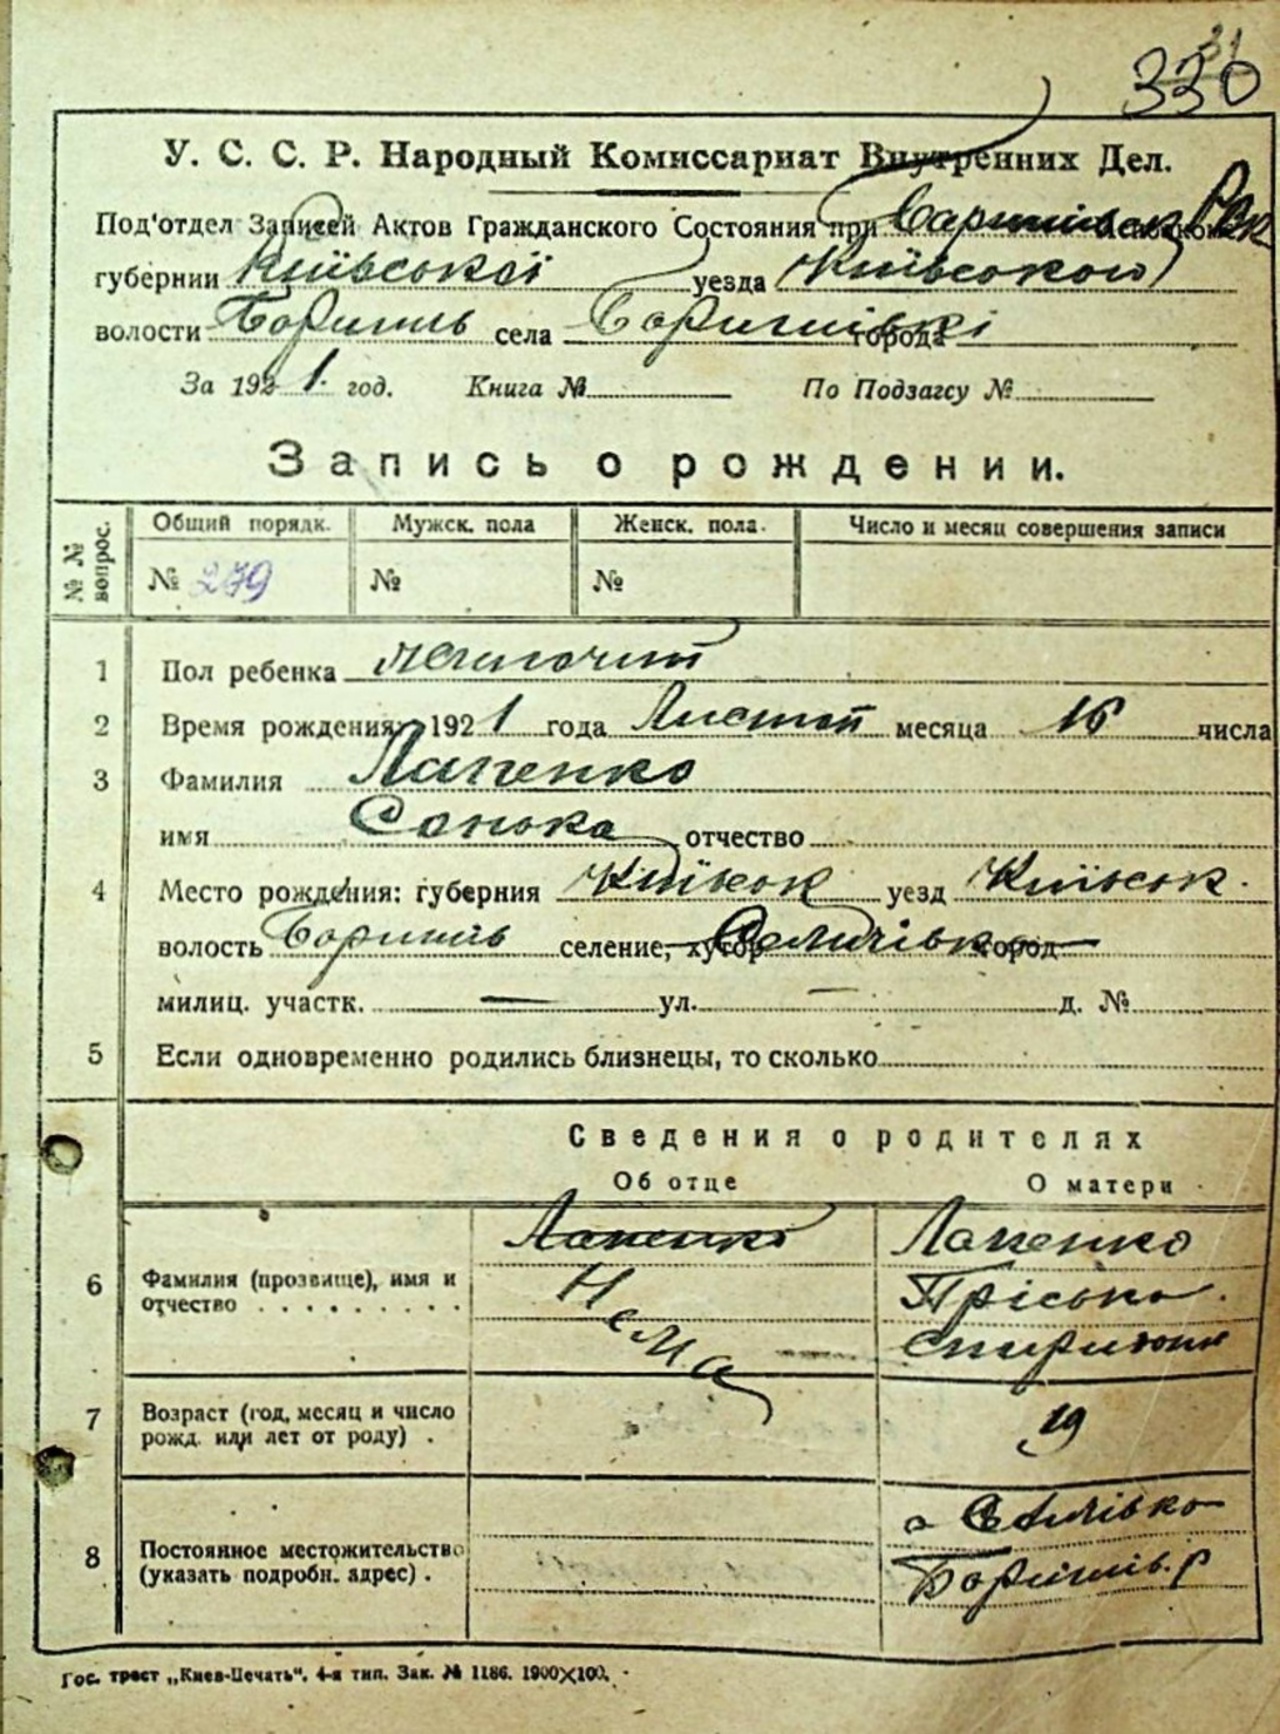 31
330
У. С. С. Р. Народный Комиссариат Внутренних Дел.
Под'отдел Записей Актов Гражданского Состояния при
губернии Київської уезда Київського
волости Бориспіль села города
За 1921. год. Книга № По Подзагсу №
Запись о рождении.
№№ вопрос.
Общий порядк. Мужск. пола Женск. пола. Число и месяц совершения записи
№ 279 № №
1 Пол ребенка жиночий
2 Время рождения: 1921 года Листоп месяца 16 числа
3 Фамилия Лапенко
имя Сонька отчество
4 Место рождения: губерния Київськ уезд Київськ.
волость селение, хутор город
милиц. участк. — ул. — д. №
5 Если одновременно родились близнецы, то сколько
Сведения о родителях
Об отце О матери
6 Фамилия (прозвище), имя и отчество . . . . . . . . . .
Лапенко
Нема
Лапенко
Пріська
7 Возраст (год, месяц и число рожд. или лет от роду) .
19
8 Постоянное местожительство (указать подробн. адрес) .
Гос. трест „Киев-Печать". 4-я тип. Зак. № 1186. 1900×100.